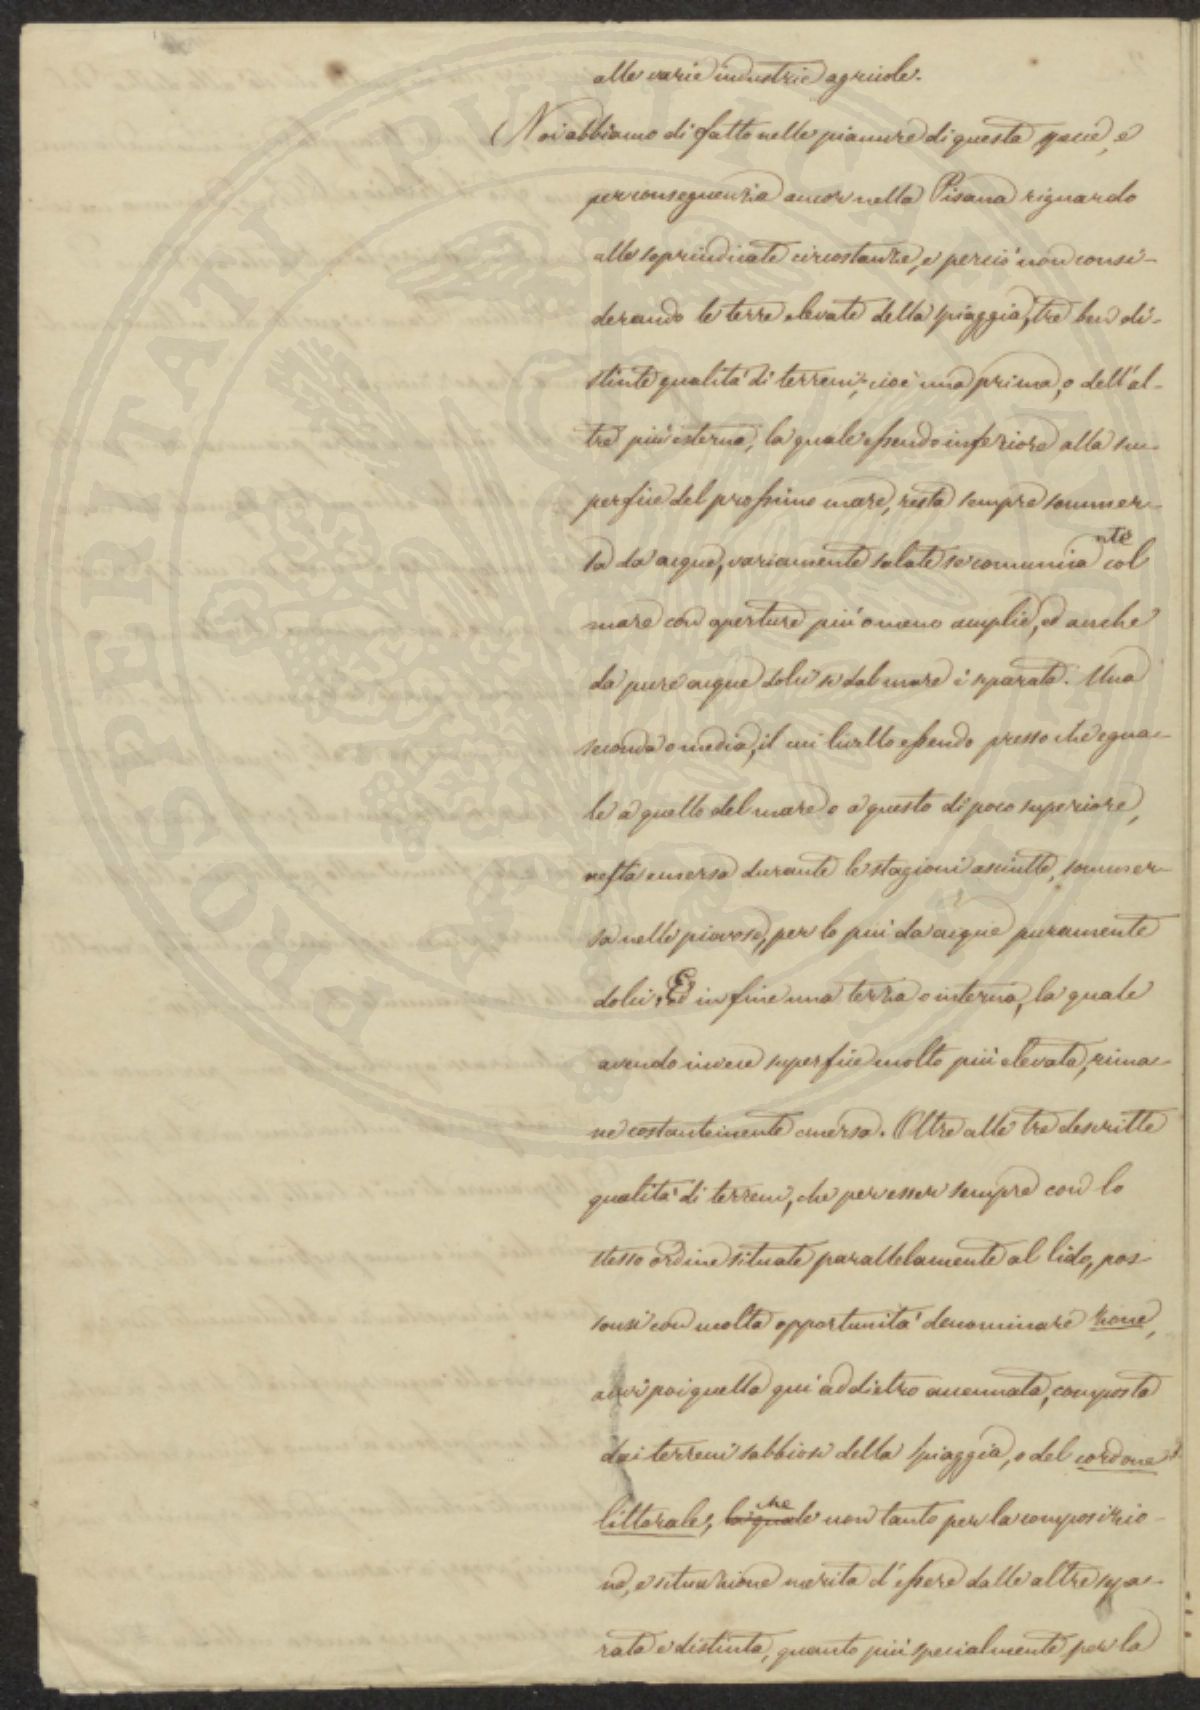 alle varie industrie agricole.
Noi abbiamo di fatto nelle pianure di questa specie, e
per conseguenza ancor nella Pisana riguardo
alle soprindicate circostanze, e perciò non consi-
derando le terre elevate della spiaggia, tre ben di-
stinte qualità di terreni, cioè una prima, o dell'al-
tre più esterna, la quale essendo inferiore alla su-
perficie del prossimo mare, resta sempre sommer-
sa da acque, variamente salate se comunica nte col
mare con aperture più o meno amplie, ed anche
da pure acque dolci se dal mare è separata. Una
seconda o media, il cui livello essendo presso che egua-
le a quello del mare o a questo di poco superiore,
resta emersa durante le stagioni asciutte, sommer-
sa nelle piovose, per lo più da acque puramente
dolci. Ed in fine una terza o interna, la quale
avendo invece superficie molto più elevata, rima-
ne costantemente emersa. Oltre alle tre descritte
qualità di terreni, che per esser sempre con lo
stesso ordine situate parallelamente al lido, pos-
sonsi con molta opportunità denominare zone,
avvi poi quella qui addietro accennata, composta
dai terreni sabbiosi della spiaggia, o del cordone
littorale, la quale che non tanto per la composizio-
ne, e situazione merita d'essere dalle altre sepa-
rata e distinta, quanto più specialmente per la
PROSPERITATI PUBLICAE